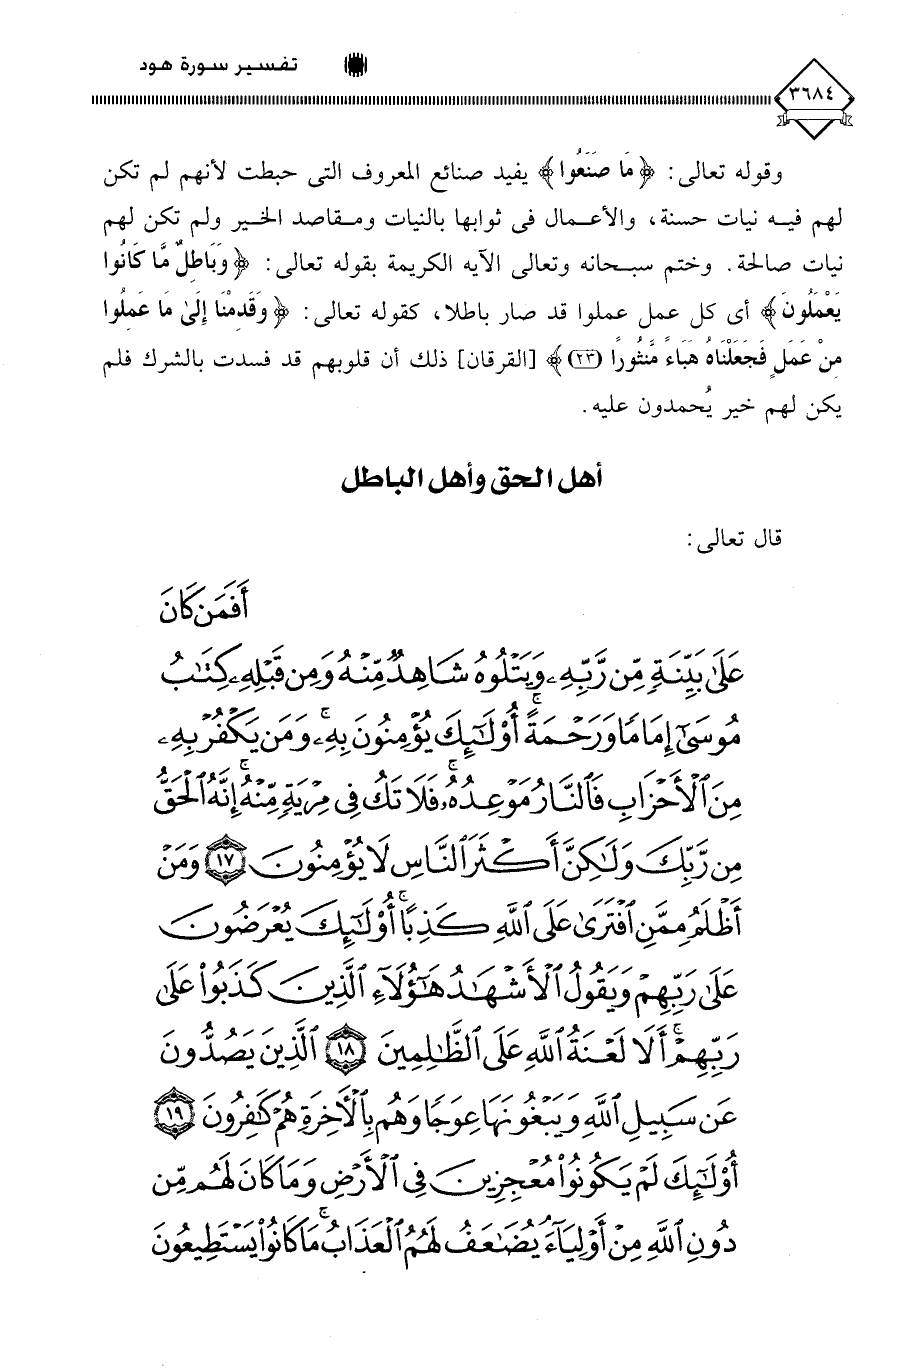 ٣٦٨٤
تفسير سورة هود
وقوله تعالى: ﴿مَا صَنَعُوا﴾ يفيد صنائع المعروف التى حبطت لأنهم لم تكن
لهم فيه نيات حسنة، والأعمال فى ثوابها بالنيات ومقاصد الخير ولم تكن لهم
نيات صالحة. وختم سبحانه وتعالى الآيه الكريمة بقوله تعالى: ﴿وَبَاطِلٌ مَّا كَانُوا
يَعْمَلُونَ﴾ أى كل عمل عملوا قد صار باطلا، كقوله تعالى: ﴿وَقَدِمْنَا إِلَىٰ مَا عَمِلُوا
مِنْ عَمَلٍ فَجَعَلْنَاهُ هَبَاءً مَّنثُورًا (٢٣)﴾ [الفرقان] ذلك أن قلوبهم قد فسدت بالشرك فلم
يكن لهم خير يُحمدون عليه.
أهل الحق وأهل الباطل
قال تعالى:
أَفَمَن كَانَ
عَلَىٰ بَيِّنَةٍ مِّن رَّبِّهِۦ وَيَتْلُوهُ شَاهِدٌ مِّنْهُ وَمِن قَبْلِهِۦ كِتَٰبُ
مُوسَىٰٓ إِمَامًا وَرَحْمَةً ۚ أُو۟لَٰٓئِكَ يُؤْمِنُونَ بِهِۦ ۚ وَمَن يَكْفُرْ بِهِۦ
مِنَ ٱلْأَحْزَابِ فَٱلنَّارُ مَوْعِدُهُۥ ۚ فَلَا تَكُ فِى مِرْيَةٍ مِّنْهُ ۚ إِنَّهُ ٱلْحَقُّ
مِن رَّبِّكَ وَلَٰكِنَّ أَكْثَرَ ٱلنَّاسِ لَا يُؤْمِنُونَ ١٧ وَمَنْ
أَظْلَمُ مِمَّنِ ٱفْتَرَىٰ عَلَى ٱللَّهِ كَذِبًا ۚ أُو۟لَٰٓئِكَ يُعْرَضُونَ
عَلَىٰ رَبِّهِمْ وَيَقُولُ ٱلْأَشْهَٰدُ هَٰٓؤُلَآءِ ٱلَّذِينَ كَذَبُوا۟ عَلَىٰ
رَبِّهِمْ ۚ أَلَا لَعْنَةُ ٱللَّهِ عَلَى ٱلظَّٰلِمِينَ ١٨ ٱلَّذِينَ يَصُدُّونَ
عَن سَبِيلِ ٱللَّهِ وَيَبْغُونَهَا عِوَجًا وَهُم بِٱلْأَخِرَةِ هُمْ كَٰفِرُونَ ١٩
أُو۟لَٰٓئِكَ لَمْ يَكُونُوا۟ مُعْجِزِينَ فِى ٱلْأَرْضِ وَمَا كَانَ لَهُم مِّن
دُونِ ٱللَّهِ مِنْ أَوْلِيَآءَ ۘ يُضَٰعَفُ لَهُمُ ٱلْعَذَابُ ۚ مَا كَانُوا۟ يَسْتَطِيعُونَ